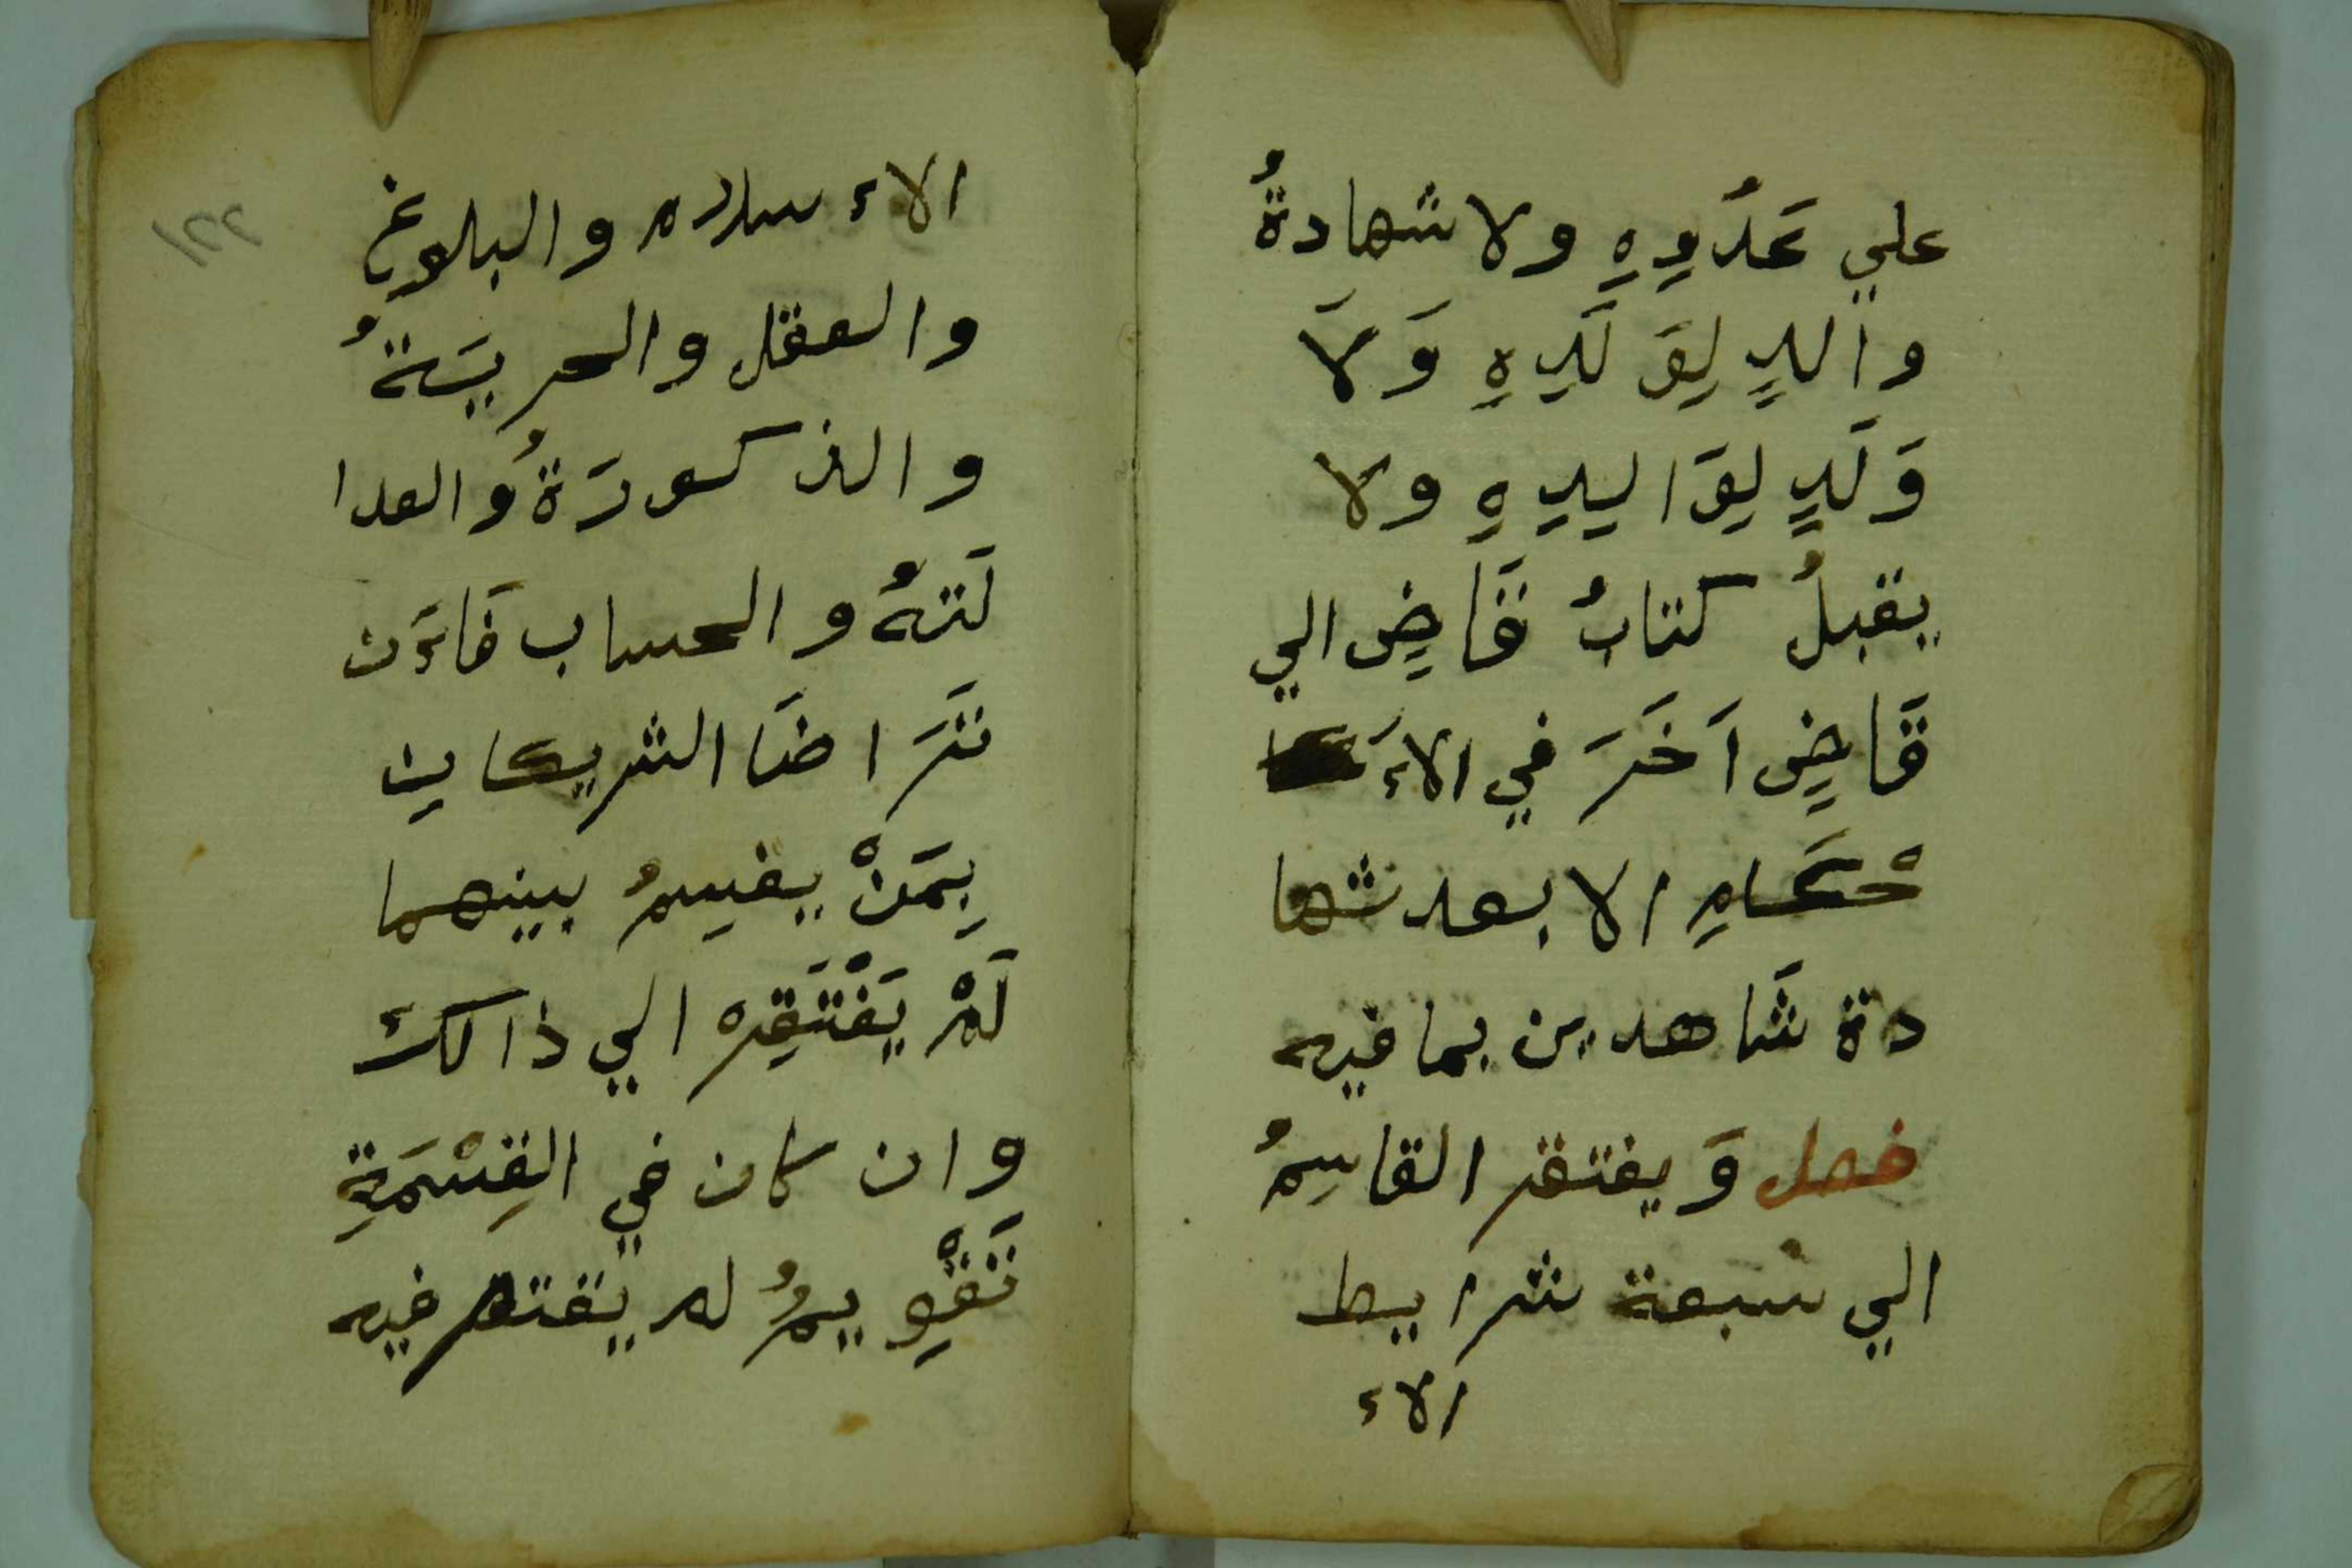 علي عَدُوِهِ ولا شهادةُ
والدٍ لِوَلَدِهِ وَلَا
وَلَدٍ لِوَاليدِهِ ولا
يقبلُ كتابُ قَاضٍ الي
قَاضٍ اَخَرَ في الاءَ
حْكَامِ الا بعد شها
دة شَاهدين بما فيه
فصل وَيفتقر القاسِمُ
الي سبعة شرايط
الاء
الاءسلام والبلوغ
والعقل والحريَةُ
والذكورَةُ والعدا
لَتهُ والحساب فَاءَن
تَرَاضَا الشريكاين
بِمَنْ يقسِمُ بينهما
لَمْ يَفْتَقِره الي ذالكَ
وان كان في القِسْمَةِ
تَقْوِيمُ لم يقتصر فيه
١٢٢